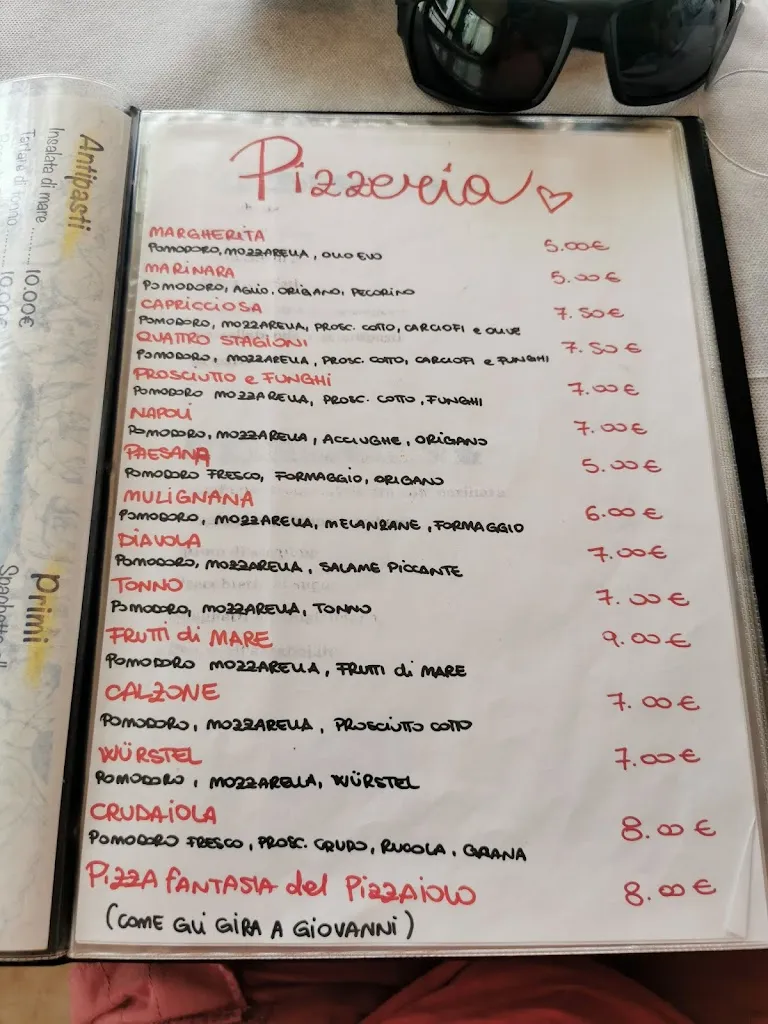 Antipasti
Insalata di mare ......... 10.00€
Tartare di tonno ......... 10.00€
Primi
Pizzeria
MARGHERITA 5.00€
POMODORO, MOZZARELLA, OLIO EVO
MARINARA 5.00€
POMODORO, AGLIO, ORIGANO, PECORINO
CAPRICCIOSA 7.50€
POMODORO, MOZZARELLA, PROSC. COTTO, CARCIOFI e OLIVE
QUATTRO STAGIONI 7.50€
POMODORO, MOZZARELLA, PROSC. COTTO, CARCIOFI e FUNGHI
PROSCIUTTO e FUNGHI 7.00€
POMODORO MOZZARELLA, PROSC. COTTO, FUNGHI
NAPOLI 7.00€
POMODORO, MOZZARELLA, ACCIUGHE, ORIGANO
PAESANA 5.00€
POMODORO FRESCO, FORMAGGIO, ORIGANO
MULIGNANA 6.00€
POMODORO, MOZZARELLA, MELANZANE, FORMAGGIO
DIAVOLA 7.00€
POMODORO, MOZZARELLA, SALAME PICCANTE
TONNO 7.00€
POMODORO, MOZZARELLA, TONNO
FRUTTI di MARE 9.00€
POMODORO MOZZARELLA, FRUTTI di MARE
CALZONE 7.00€
POMODORO, MOZZARELLA, PROSCIUTTO COTTO
WÜRSTEL 7.00€
POMODORO, MOZZARELLA, WÜRSTEL
CRUDAIOLA 8.00€
POMODORO FRESCO, PROSC. CRUDO, RUCOLA, GRANA
PIZZA FANTASIA del PIZZAIOLO 8.00€
(COME GLI GIRA A GIOVANNI)